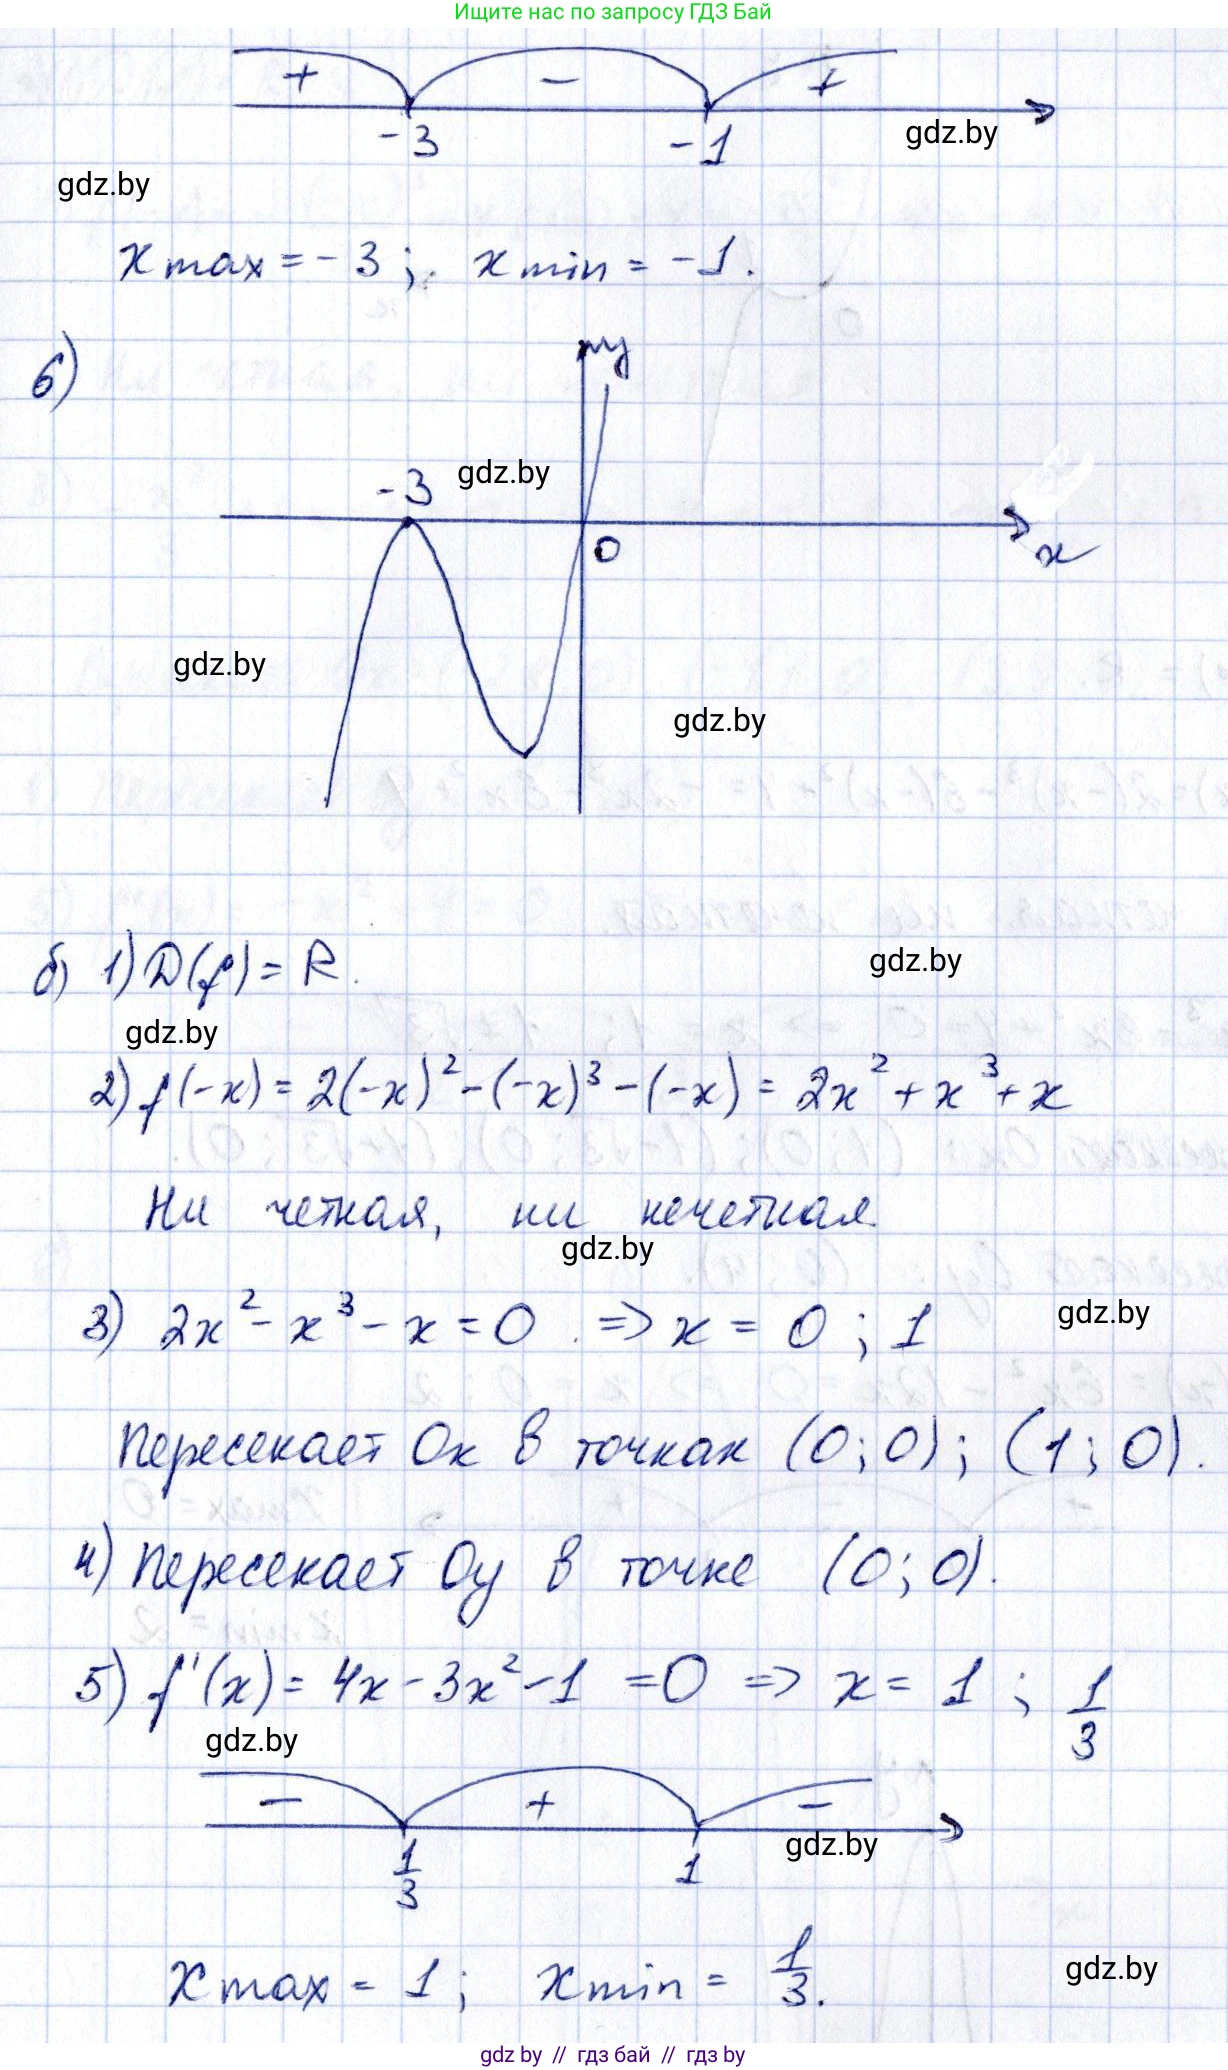 Ищите нас по запросу ГДЗ Бай
+ − +
-3 -1
gdz.by
gdz.by
x max = -3; x min = -1.
6)
y
-3
gdz.by
0
x
gdz.by
gdz.by
б) 1) D(f) = R.
gdz.by
gdz.by
2) f(-x) = 2(-x)² - (-x)³ - (-x) = 2x² + x³ + x
Ни четная, ни нечетная
gdz.by
3) 2x² - x³ - x = 0 => x = 0; 1
gdz.by
Пересекает Ox в точках (0; 0); (1; 0).
4) Пересекает Oy в точке (0; 0).
5) f'(x) = 4x - 3x² - 1 = 0 => x = 1; 1/3
gdz.by
− + −
gdz.by
1/3 1
x max = 1; x min = 1/3.
gdz.by
gdz by // гдз бай // гдз by